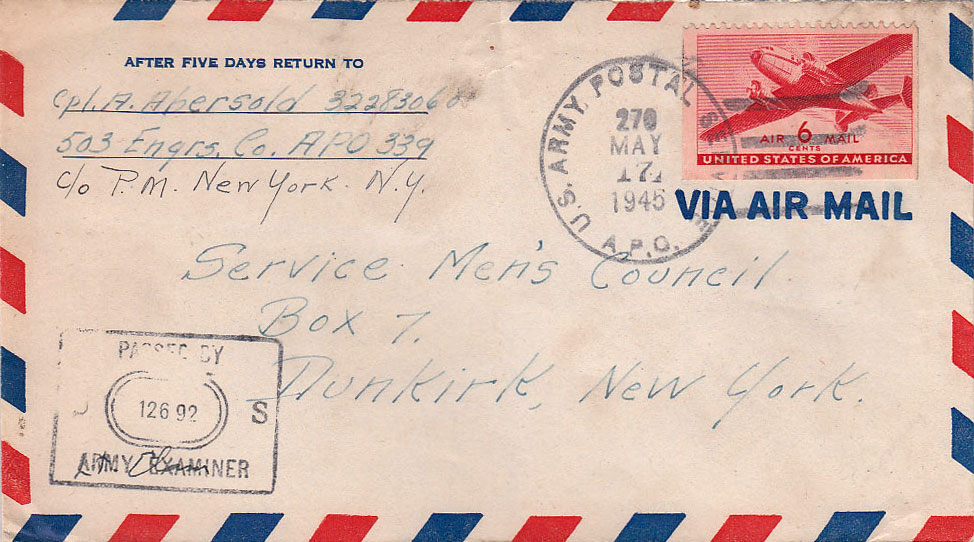 AFTER FIVE DAYS RETURN TO
Cpl. A. Abersold 32283060
503 Engrs. Co. APO 339
c/o P.M. New York. N.Y.
U.S. ARMY POSTAL SERVICE
270
MAY
17
1945
A.P.O.
AIR 6 MAIL
CENTS
UNITED STATES OF AMERICA
VIA AIR MAIL
Service Men's Council
Box 7.
Dunkirk, New York.
PASSED BY
U S
12692
ARMY EXAMINER